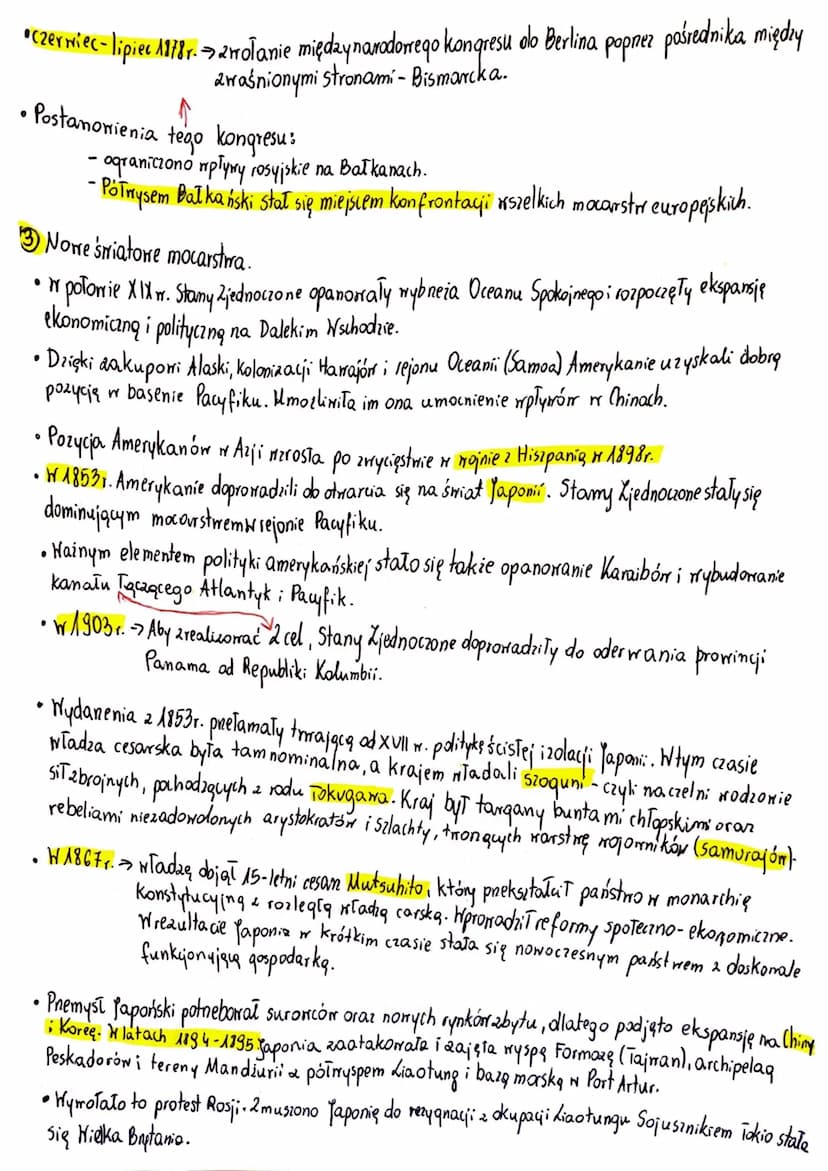 • czerwiec-lipiec 1878r. → zwołanie międzynarodowego kongresu do Berlina poprzez pośrednika między
zwaśnionymi stronami - Bismarcka.
• Postanowienia tego kongresu:
- ograniczono wpływy rosyjskie na Bałkanach.
- Półwysem Bałkański stał się miejscem konfrontacji wszelkich mocarstw europejskich.
③ Nowe światowe mocarstwa.
• W połowie XIX w. Stany Zjednoczone opanowały wybrzeża Oceanu Spokojnego i rozpoczęły ekspansję
ekonomiczną i polityczną na Dalekim Wschodzie.
• Dzięki zakupowi Alaski, kolonizacji Hawajów i rejonu Oceanii (Samoa) Amerykanie uzyskali dobrą
pozycją w basenie Pacyfiku. Umożliwiła im ona umocnienie wpływów w Chinach.
• Pozycja Amerykanów w Azji wzrosła po zwycięstwie w wojnie z Hiszpanią w 1898r.
• W 1853r. Amerykanie doprowadzili do otwarcia się na świat Japonii. Stany Zjednoczone stały się
dominującym mocarstwem w rejonie Pacyfiku.
• Ważnym elementem polityki amerykańskiej stało się także opanowanie Karaibów i wybudowanie
kanału łączącego Atlantyk i Pacyfik.
• W 1903r. → Aby zrealizować 2 cel, Stany Zjednoczone doprowadziły do oderwania prowincji
Panama od Republiki Kolumbii.
• Wydarzenia z 1853r. przełamały trwającą od XVII w. politykę ścisłej izolacji Japonii. W tym czasie
władza cesarska była tam nominalna, a krajem władali szoguni - czyli naczelni wodzowie
sił zbrojnych, pochodzących z rodu Tokugawa. Kraj był targany buntami chłopskimi oraz
rebeliami niezadowolonych arystokratów i szlachty, tworzących warstwę wojowników (samurajów).
• W 1867r. → władzę objął 15-letni cesarz Mutsuhito, który przekształcił państwo w monarchię
konstytucyjną z rozległą władzą carską. Wprowadził reformy społeczno-ekonomiczne.
W rezultacie Japonia w krótkim czasie stała się nowoczesnym państwem z doskonale
funkcjonującą gospodarką.
• Przemysł Japoński potrzebował surowców oraz nowych rynków zbytu, dlatego podjęto ekspansję na Chiny
i Koreę. W latach 1894-1895 Japonia zaatakowała i zajęła wyspę Formozę (Tajwan), archipelag
Peskadorów i tereny Mandżurii z półwyspem Liaotung i bazą morską w Port Artur.
• Wywołało to protest Rosji. Zmuszono Japonię do rezygnacji z okupacji Liaotungu Sojusznikiem Tokio stała
się Wielka Brytania.